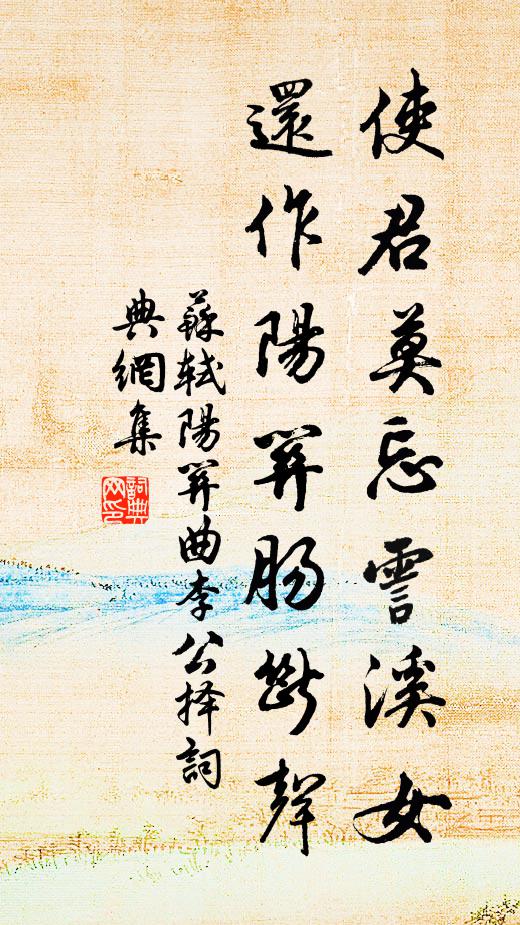 使君莫忘霅溪女
還作陽關腸斷聲
蘇軾陽關曲李公择詞
典網集
詞典
网印